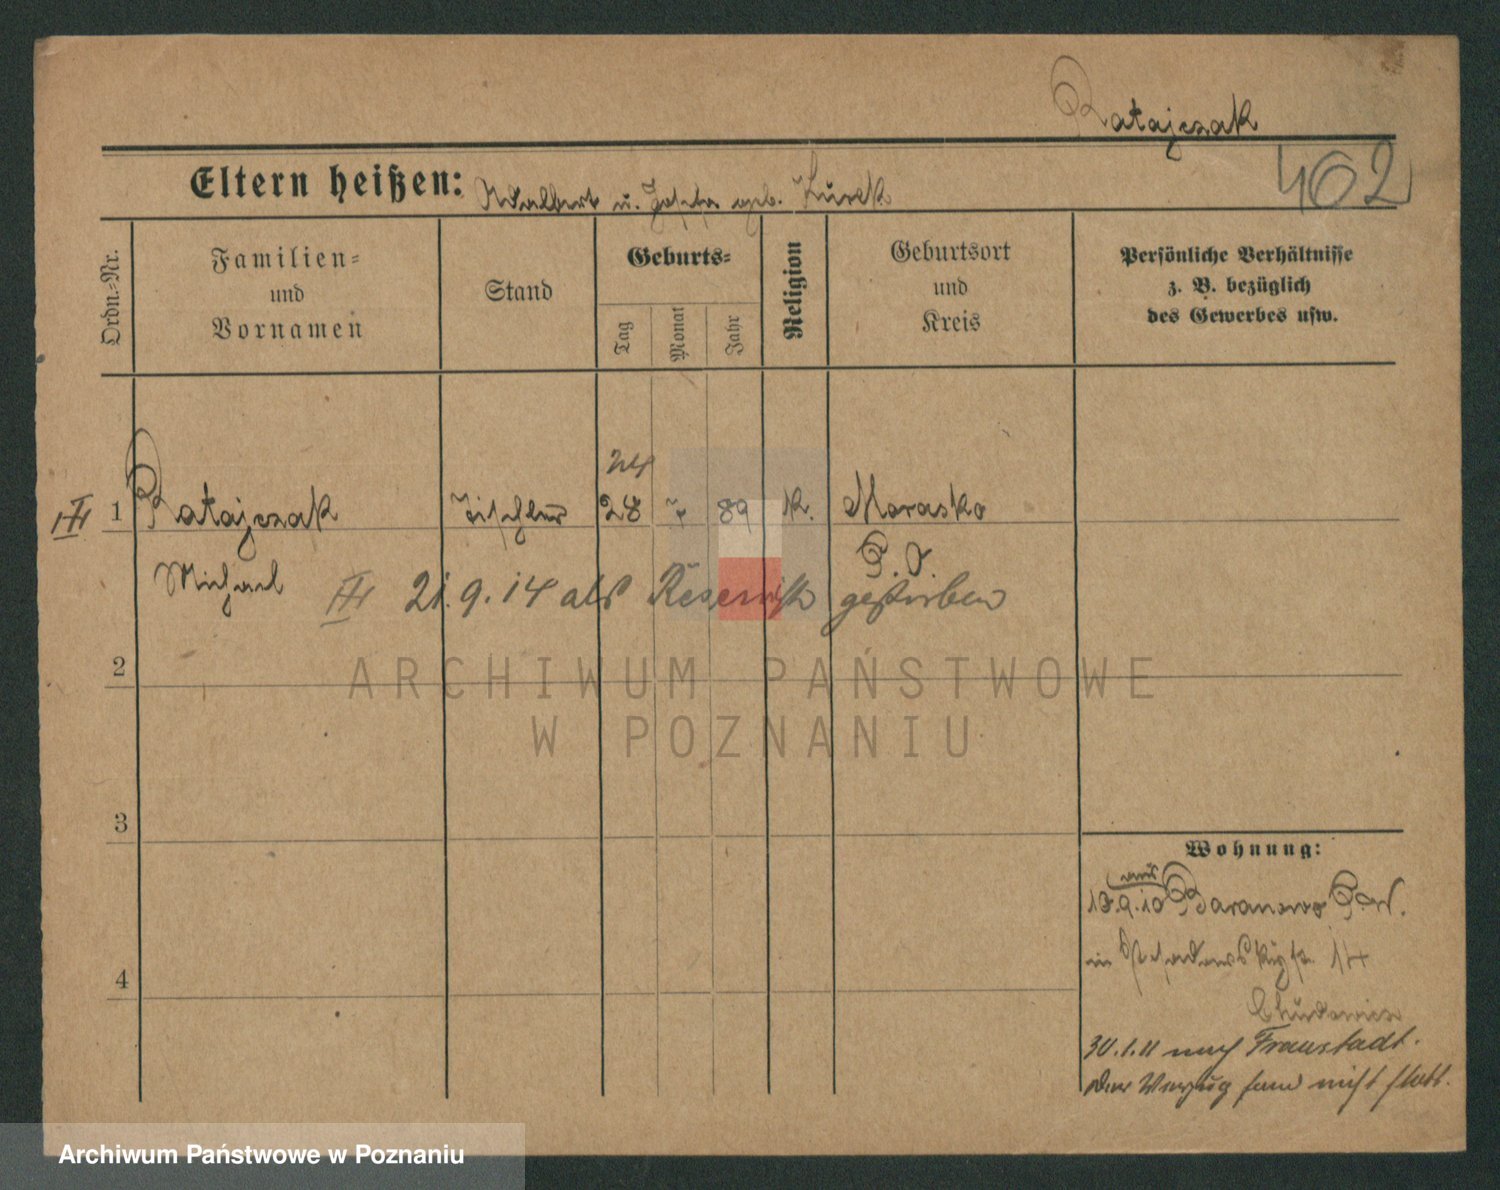 Ratajczak
402
Eltern heißen: Adalbert u. Josefa geb. Kurek
Ordn.-Nr.
Familien-
und
Vornamen
Stand
Geburts-
Tag
Monat
Jahr
Religion
Geburtsort
und
Kreis
Persönliche Verhältnisse
z. B. bezüglich
des Gewerbes usw.
24
1 Ratajczak Tischler 28 7 89 K. Morasko
Michael P. O.
21.9.14 als Reservist gestorben
2
3
4
Wohnung:
aus
13.9.10 Baranowo P.W.
in 14
30.1.11 nach Fraustadt.
Der Verzug fand nicht statt.
ARCHIWUM PAŃSTWOWE
W POZNANIU
Archiwum Państwowe w Poznaniu